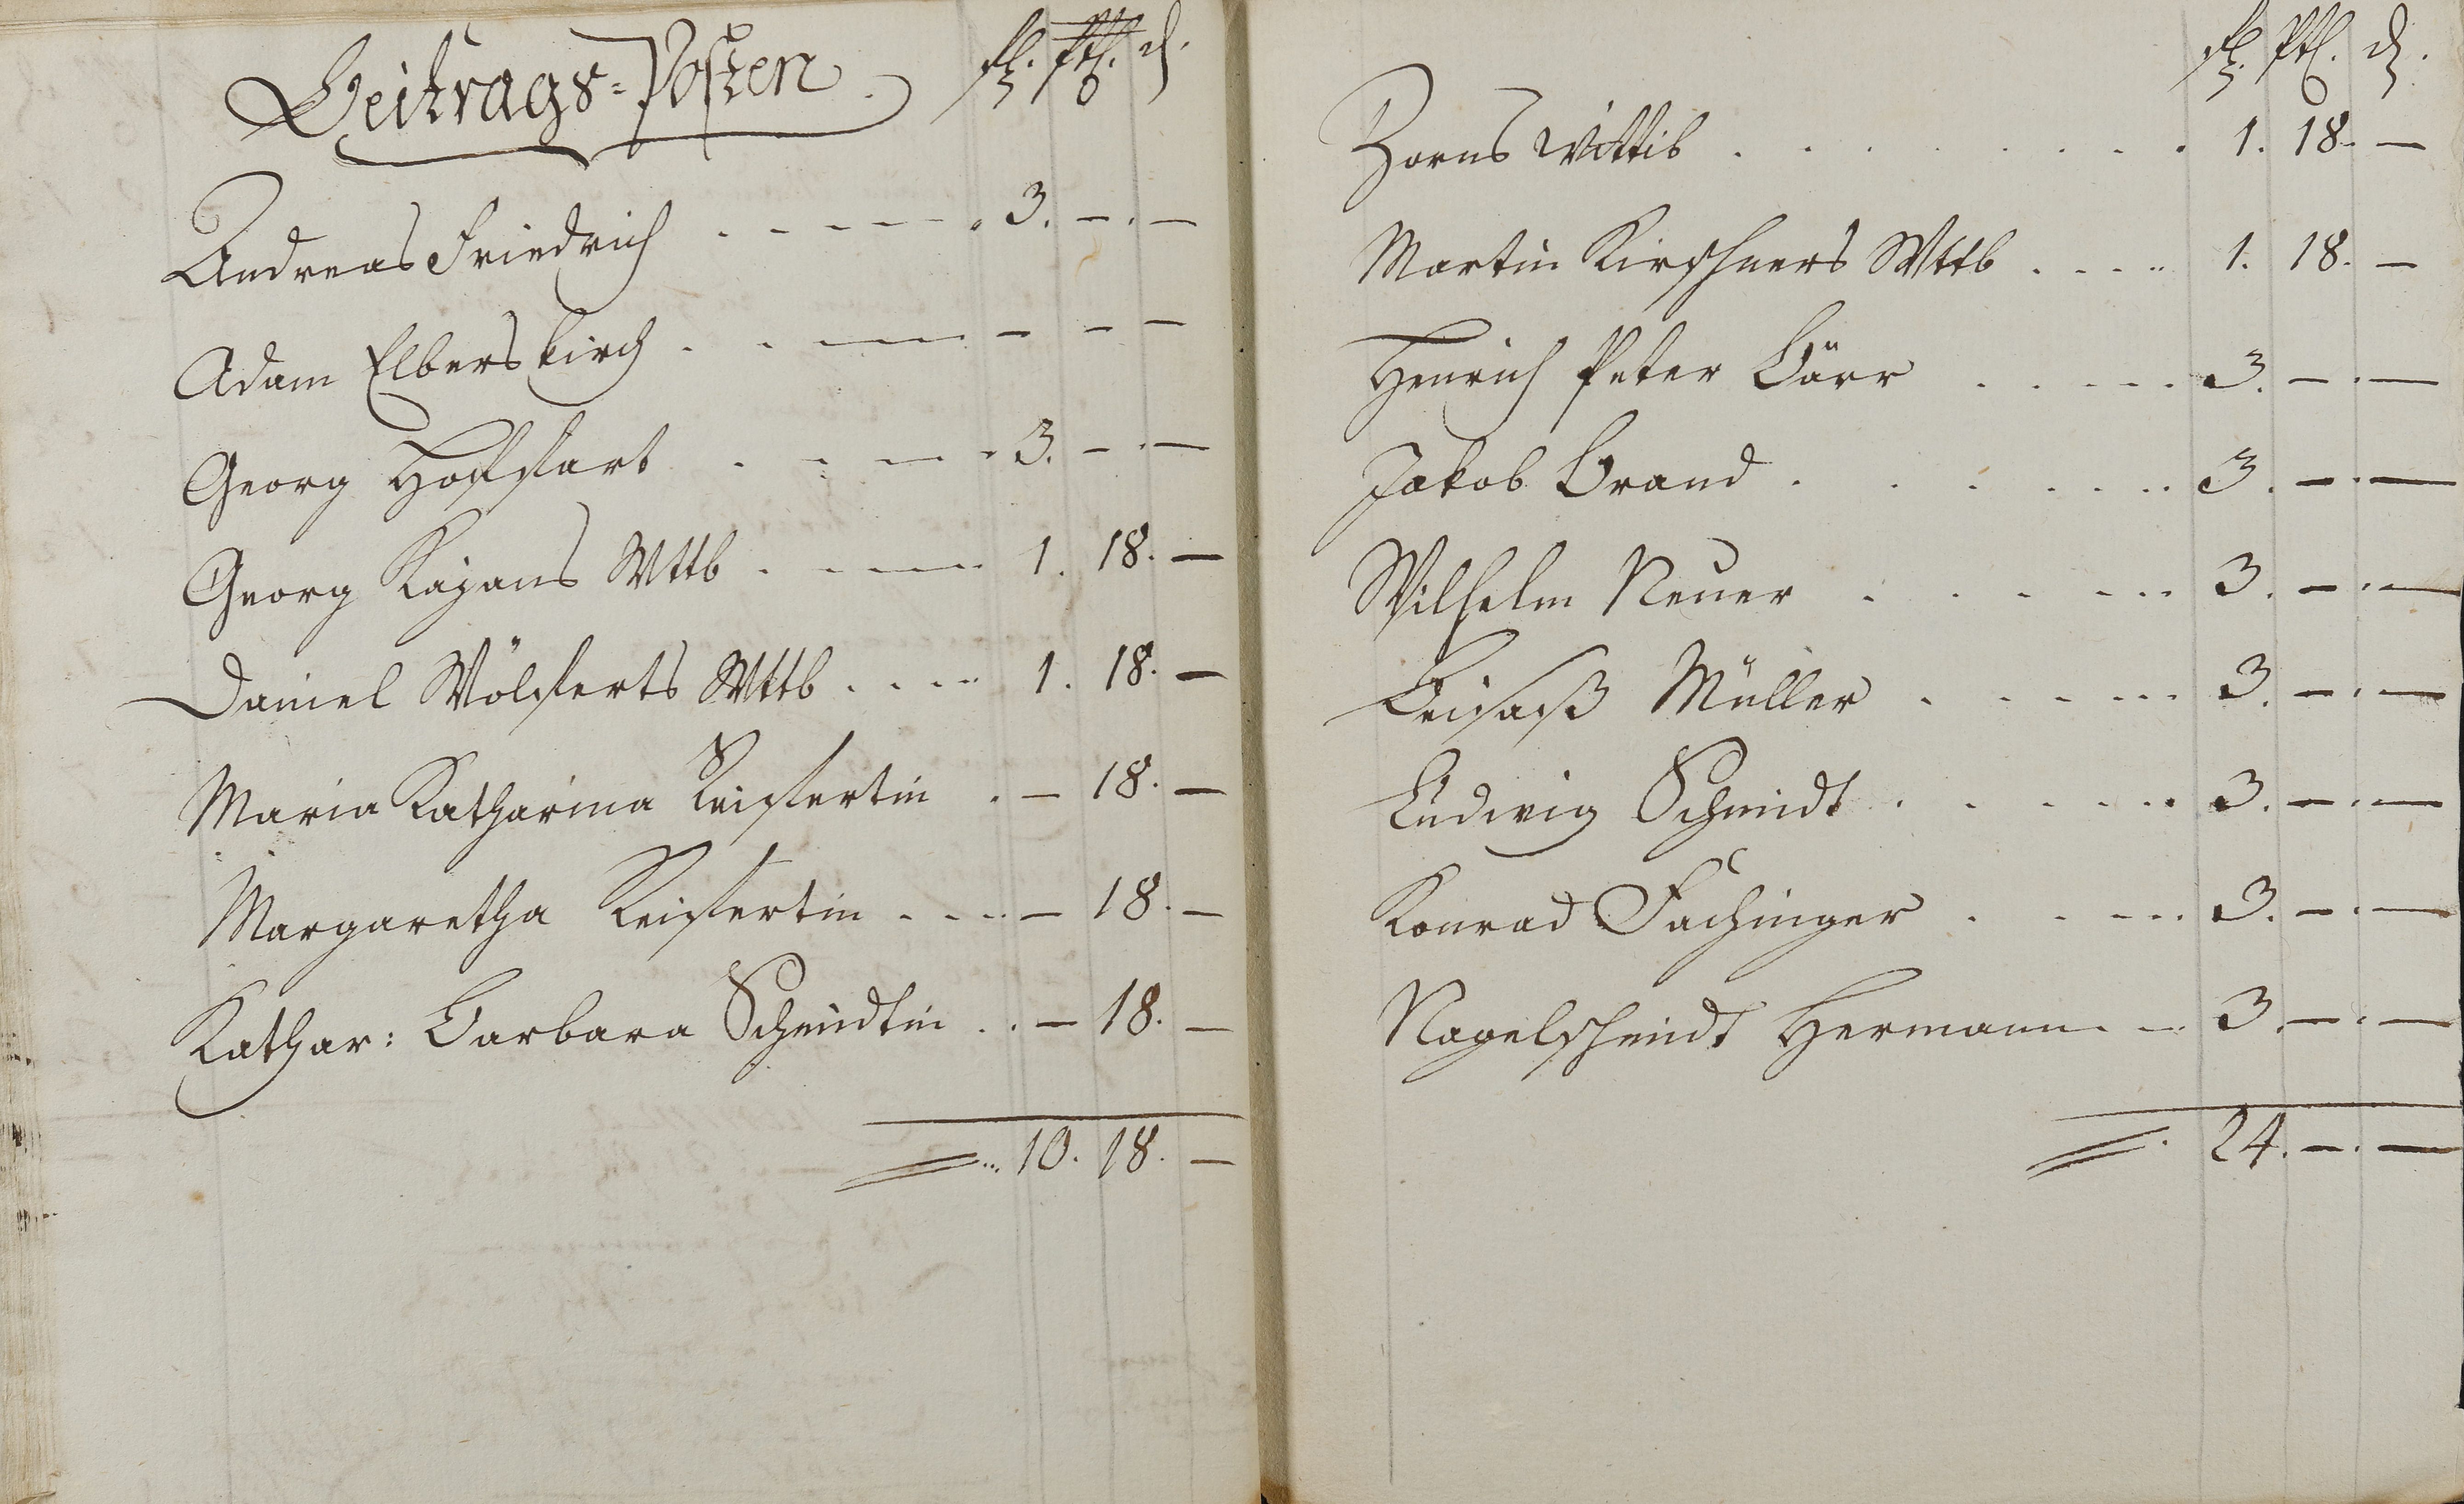 Beitrags-Posten. fl. ptz. d.
Andreas Friedrich . . . . . 3. — . —
Adam Elberskirch . . — — — —
Georg Hoffart . . . . 3. — . —
Georg Kazans Wttb . . . . 1. 18. —
Daniel Wölferts Wttb . . . . 1. 18. —
Maria Katharina Reifertin . — 18. —
Margaretha Reifertin . . . — 18. —
Kathar: Barbara Schmidtin . . — 18. —
10. 18. —
fl. ptz. d.
Zorns Wittib . . . . . . . 1. 18. —
Martin Kirschners Wttb . . . . 1. 18. —
Henrich Peter Bärr . . . . . 3. — . —
Jakob Brand . . . . . . 3. — . —
Wilhelm Neuer . . . . . . 3. — . —
Beisaß Müller . . . . . 3. — . —
Ludwig Schmidt . . . . . . 3. — . —
Konrad Fachinger . . . . . 3. — . —
Nagelschmidt Hermann . — 3. — . —
24. — . —